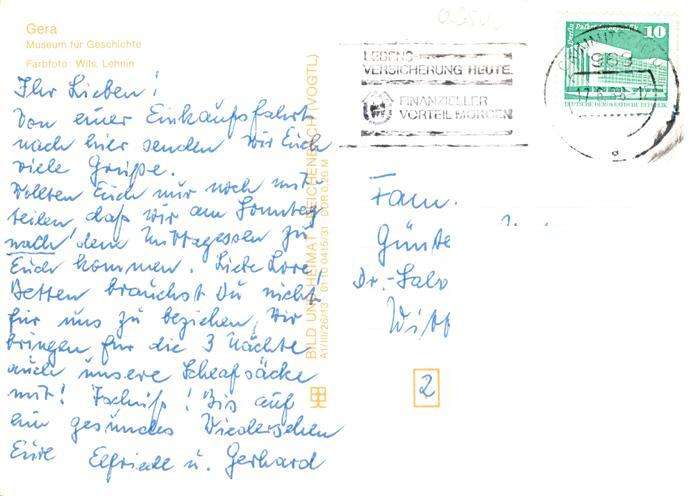 Gera
Museum für Geschichte
Farbfoto: Wils. Lehnin
Ihr Lieben!
Von einer Einkaufsfahrt
nach hier senden wir Euch
viele Grüße.
Wollten Euch nur noch mit-
teilen, daß wir am Sonntag
nach dem Mittagessen zu
Euch kommen. Liebe Lore
Betten brauchst Du nicht
für uns zu beziehen, wir
bringen für die 3 Nächte
auch unsere Schlafsäcke
mit! Tschüß! Bis auf
ein gesundes Wiedersehen
Eure Elfriede u. Gerhard
BILD UND HEIMAT REICHENBACH (VOGTL)
A1/III/26/13 01 10 0415/31 DDR 0,20 M
LEBENS-
VERSICHERUNG HEUTE
FINANZIELLER
VORTEIL MORGEN
10
DEUTSCHE DEMOKRATISCHE REPUBLIK
Fam.
Günte
Dr.-Salv
Witt
2